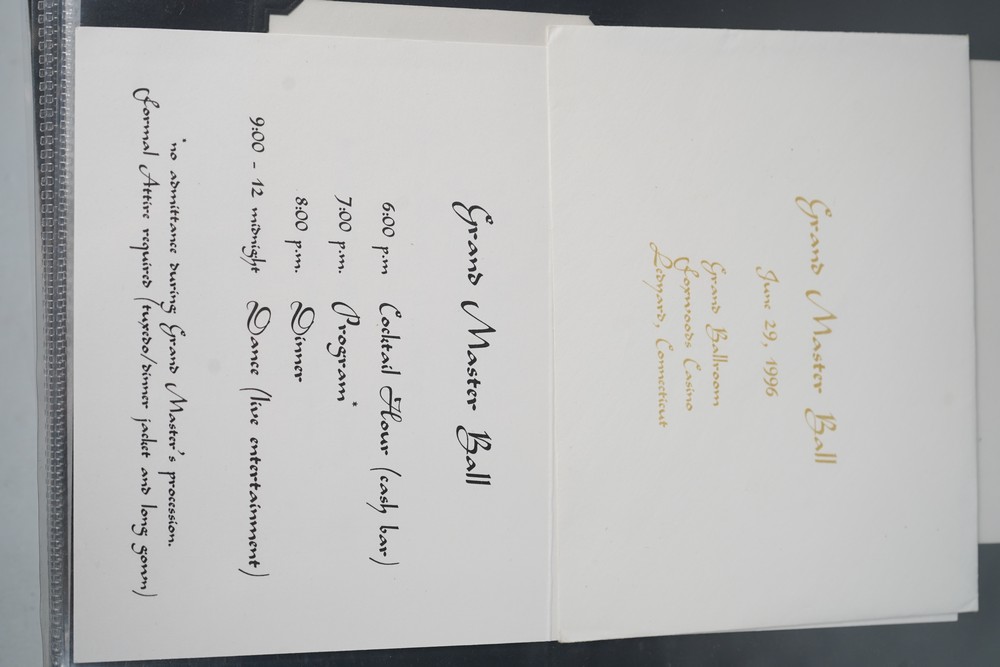 Grand Master Ball
June 29, 1996
Grand Ballroom
Foxwoods Casino
Ledyard, Connecticut
Grand Master Ball
6:00 p.m Cocktail Hour (cash bar)
7:00 p.m. Program*
8:00 p.m. Dinner
9:00 - 12 midnight Dance (live entertainment)
*no admittance during Grand Master's procession.
Formal Attire required (tuxedo/dinner jacket and long gown)